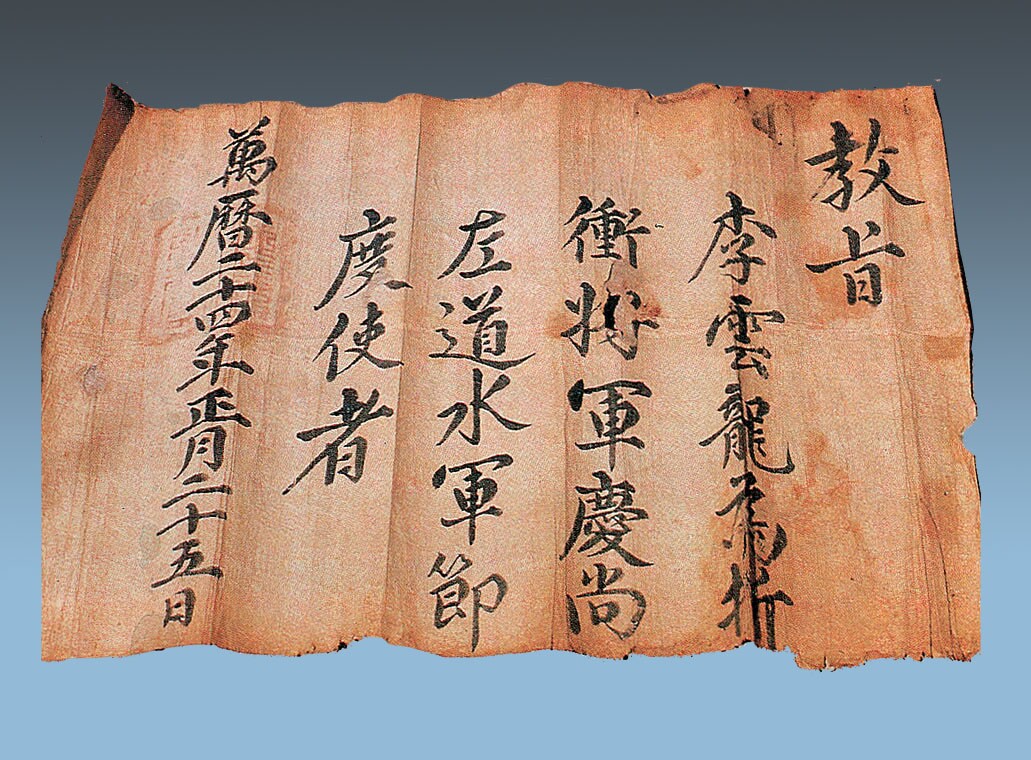 教旨
李雲龍爲折
衝將軍慶尚
左道水軍節
度使者
萬曆二十四年正月二十五日